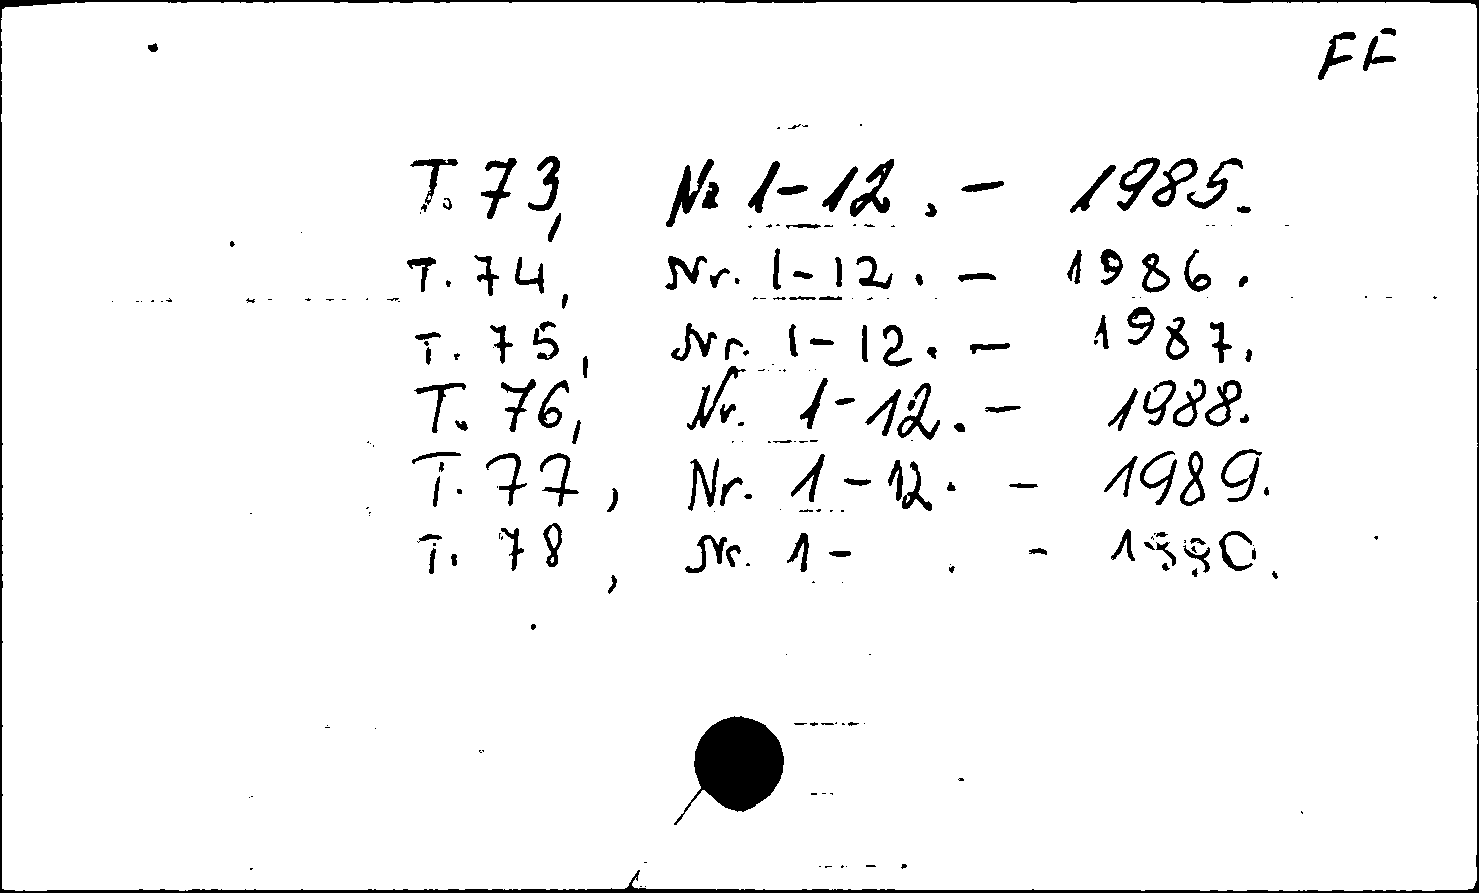 FF
T. 73, Nr 1-12. - 1985.
T. 74, Nr. 1-12. - 1986.
T. 75, Nr. 1-12. - 1987.
T. 76, Nr. 1-12. - 1988.
T. 77, Nr. 1-12. - 1989.
T. 78, Nr. 1- . - 1990.